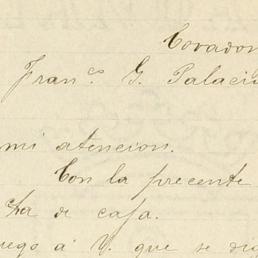 Covadon
Franco. G. Palaci
mi atencion.
Con la precente
de caja.
uego a V. que se dig